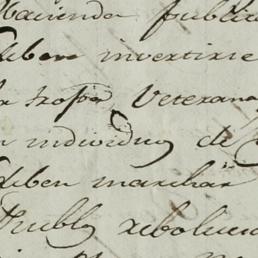 Hacienda publica
deben invertirse
la tropa Veterana
n individuos de
deben marchar
Pueblo rebolucio